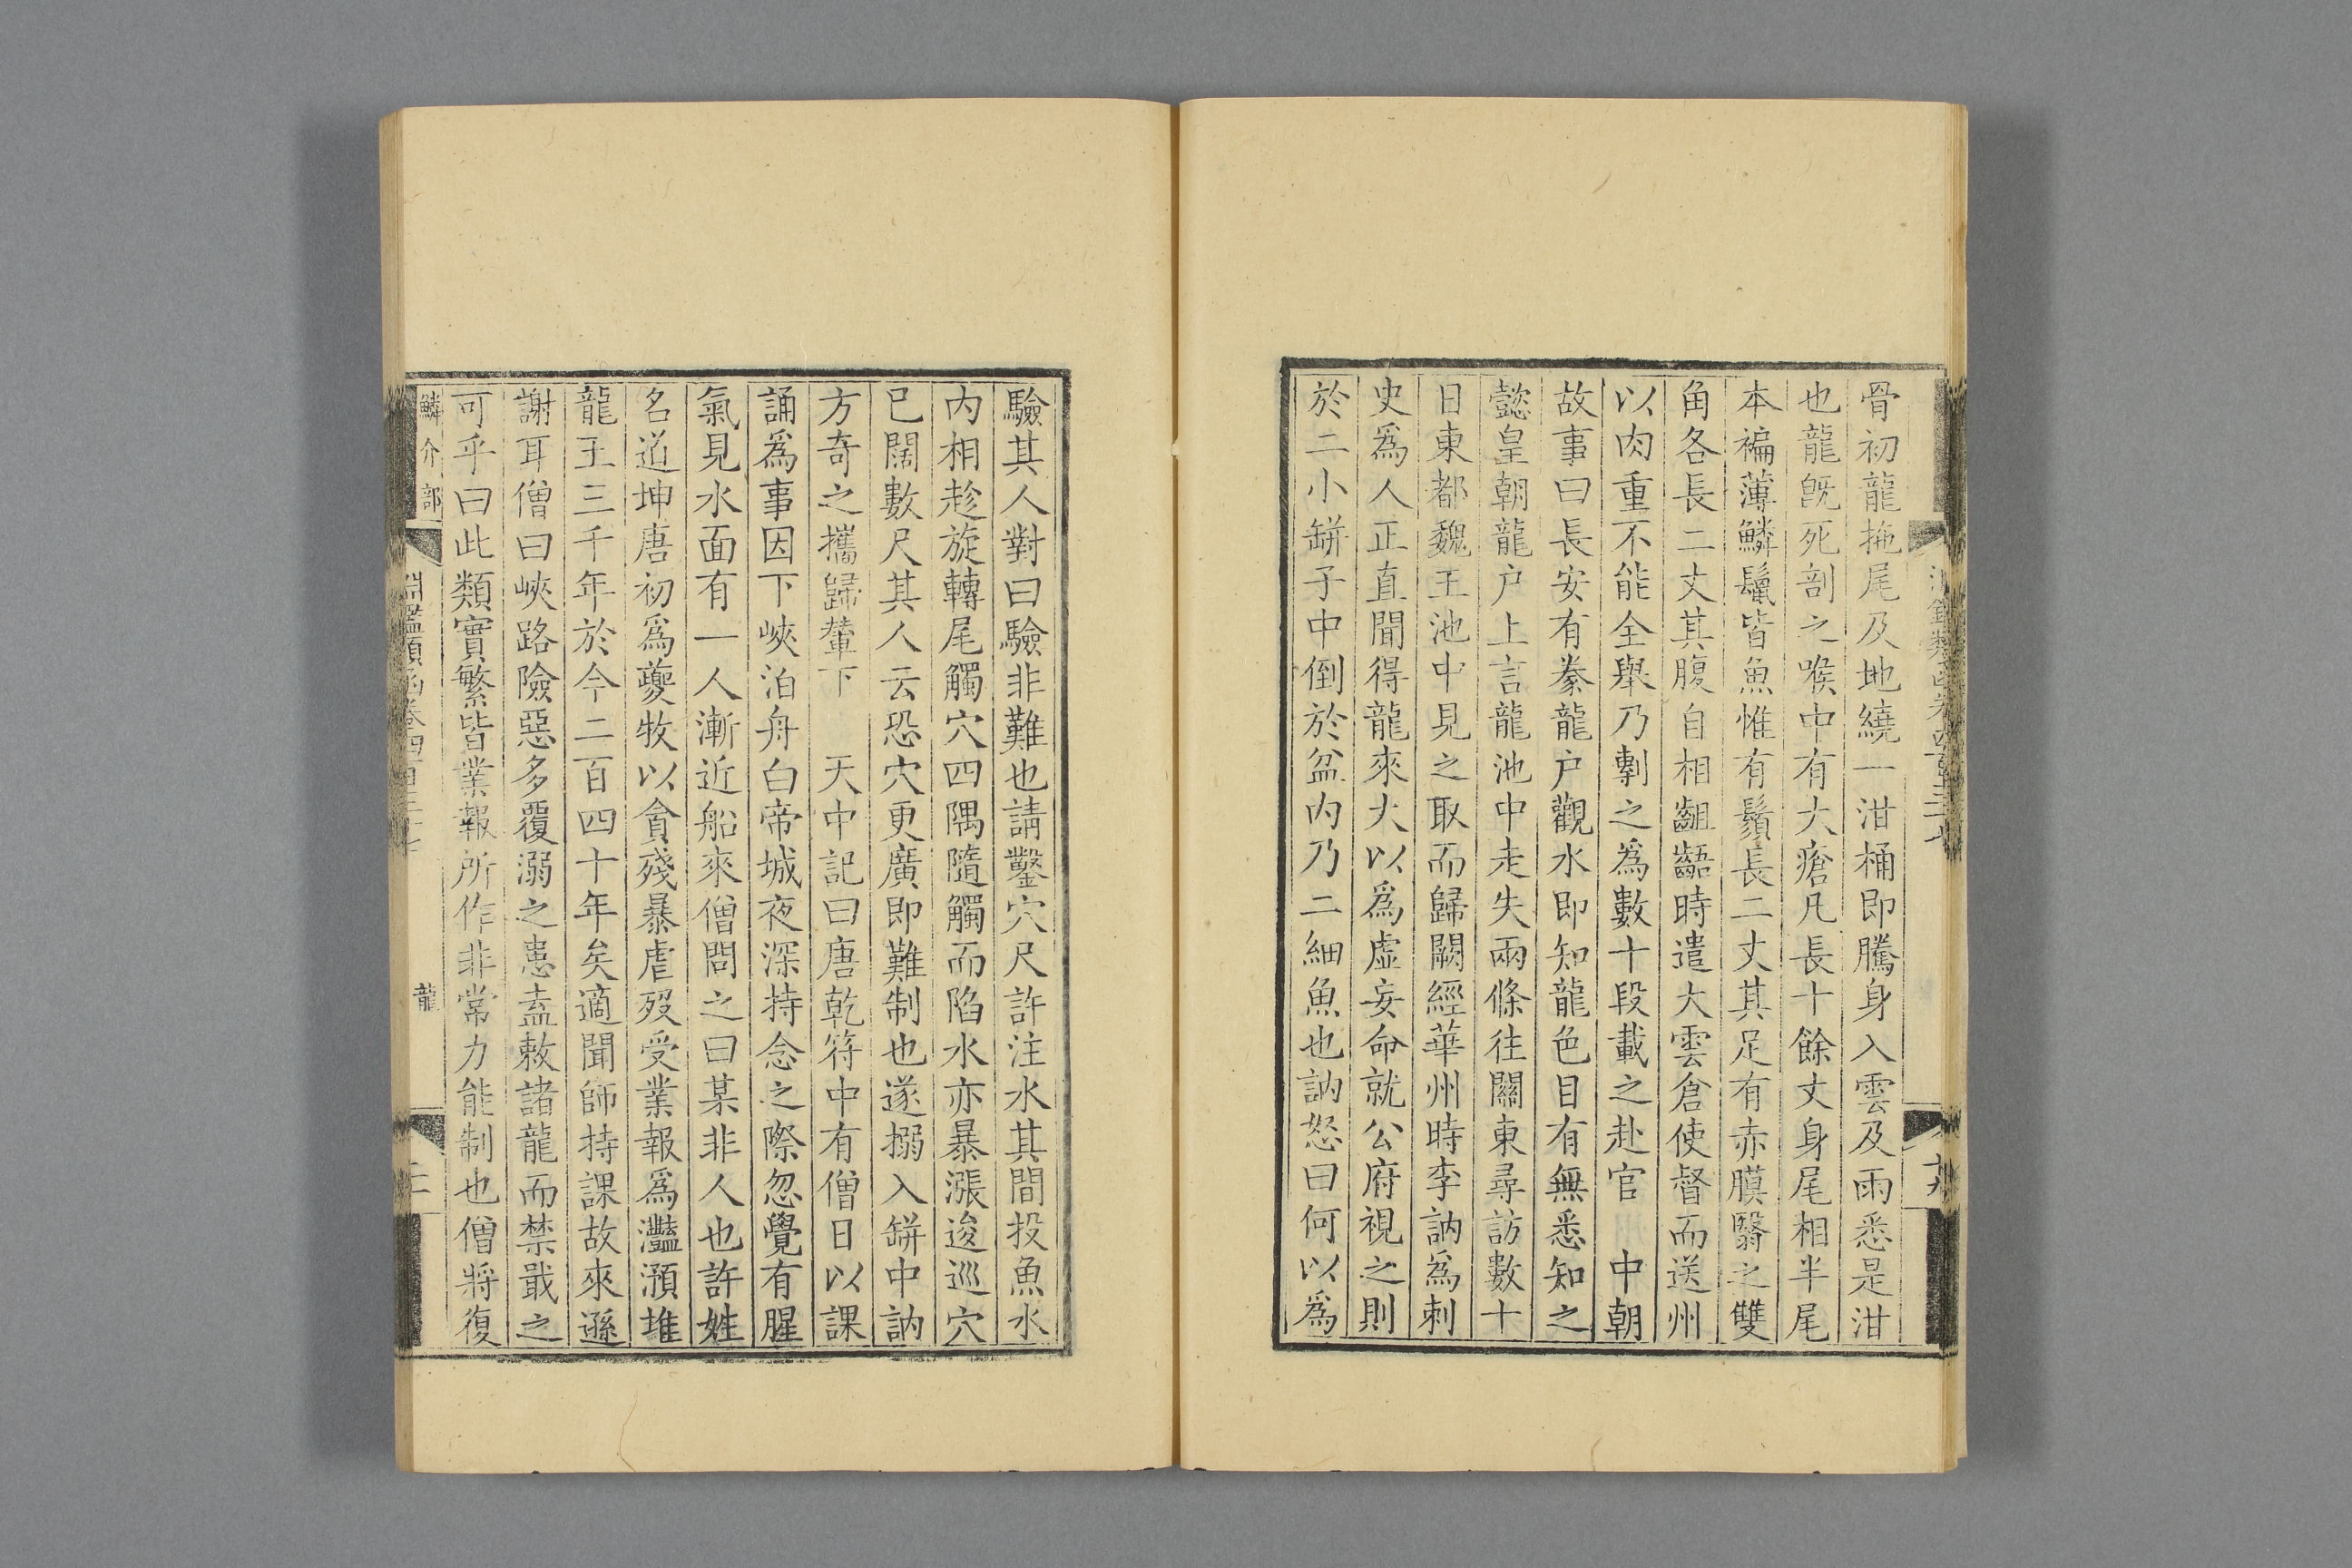 骨初龍拖尾及地繞一泔桶即騰身入雲及雨悉是泔
也龍旣死剖之喉中有大瘡凡長十餘丈身尾相半尾
本褊薄鱗鬣皆魚惟有鬚長二丈其足有赤膜翳之雙
角各長二丈其腹自相齟齬時遣大雲倉使督而送州
以肉重不能全舉乃剸之爲數十段載之赴官 中朝
故事曰長安有豢龍户觀水即知龍色目有無悉知之
懿皇朝龍户上言龍池中走失兩條往關東尋訪數十
日東都魏王池中見之取而歸闕經華州時李訥爲刺
史爲人正直聞得龍來大以爲虛妄命就公府視之則
於二小缾子中倒於盆内乃二細魚也訥怒曰何以爲
驗其人對曰驗非難也請鑿穴尺許注水其間投魚水
内相趁旋轉尾觸穴四隅隨觸而陷水亦暴漲逡巡穴
已闊數尺其人云恐穴更廣即難制也遂搦入缾中訥
方奇之攜歸輦下 天中記曰唐乾符中有僧日以課
誦爲事因下峽泊舟白帝城夜深持念之際忽覺有腥
氣見水面有一人漸近船來僧問之曰某非人也許姓
名道坤唐初爲夔牧以貪殘暴虐歿受業報爲灩澦堆
龍王三千年於今二百四十年矣適聞師持課故來遜
謝耳僧曰峽路險惡多覆溺之患盍敕諸龍而禁戢之
可乎曰此類實繁皆業報所作非常力能制也僧將復
鱗介部 淵鑑類函卷四百三十七 龍